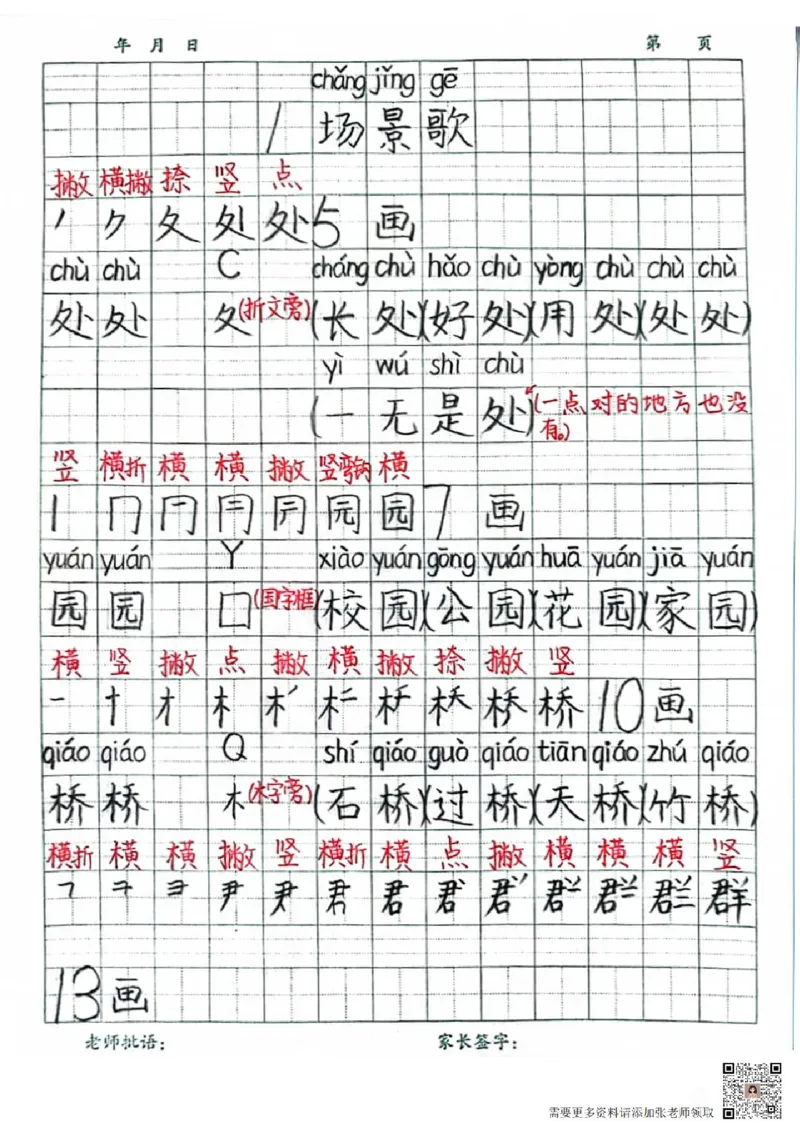 年 月 日 第 页
chǎng jǐng gē
1 场 景 歌
撇 横撇 捺 竖 点
丿 ク 夂 处 处 5 画
chù chù C cháng chù hǎo chù yòng chù chù chù
处 处 夂(折文旁)(长 处)(好 处)(用 处)(处 处)
yì wú shì chù
(一 无 是 处)(一点对的地方也没有。)
竖 横折 横 横 撇 竖弯钩 横
园 园 7 画
yuán yuán Y xiào yuán gōng yuán huā yuán jiā yuán
园 园 囗(国字框)(校 园)(公 园)(花 园)(家 园)
横 竖 撇 点 撇 横 撇 捺 撇 竖
一 十 才 木 桥 10 画
qiáo qiáo Q shí qiáo guò qiáo tiān qiáo zhú qiáo
桥 桥 木(木字旁)(石 桥)(过 桥)(天 桥)(竹 桥)
横折 横 横 撇 竖 横折 横 点 撇 横 横 横 竖
尹 君 群
13 画
老师批语： 家长签字：
需要更多资料请添加张老师领取